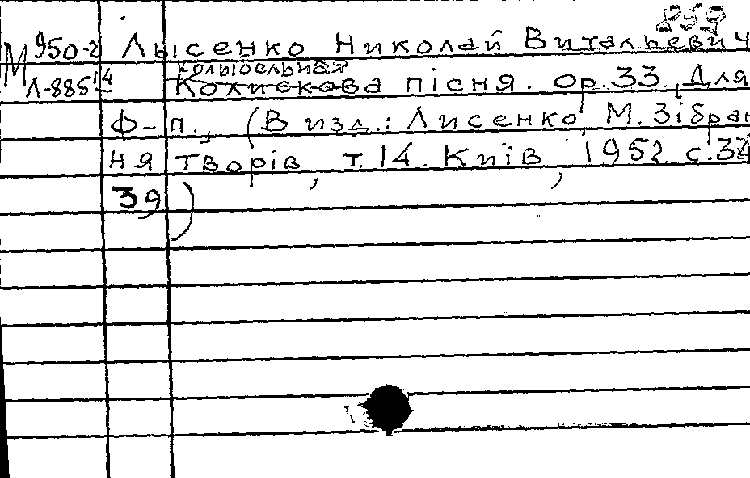 М 950-2 Лысенко Николай Витальевич
Л-885 14 Колыбельная
Колискова пісня. ор. 33. Для
ф-п., (В изд.: Лисенко, М. Зібран
ня творів, т. 14. Київ, 1952, с.
39)